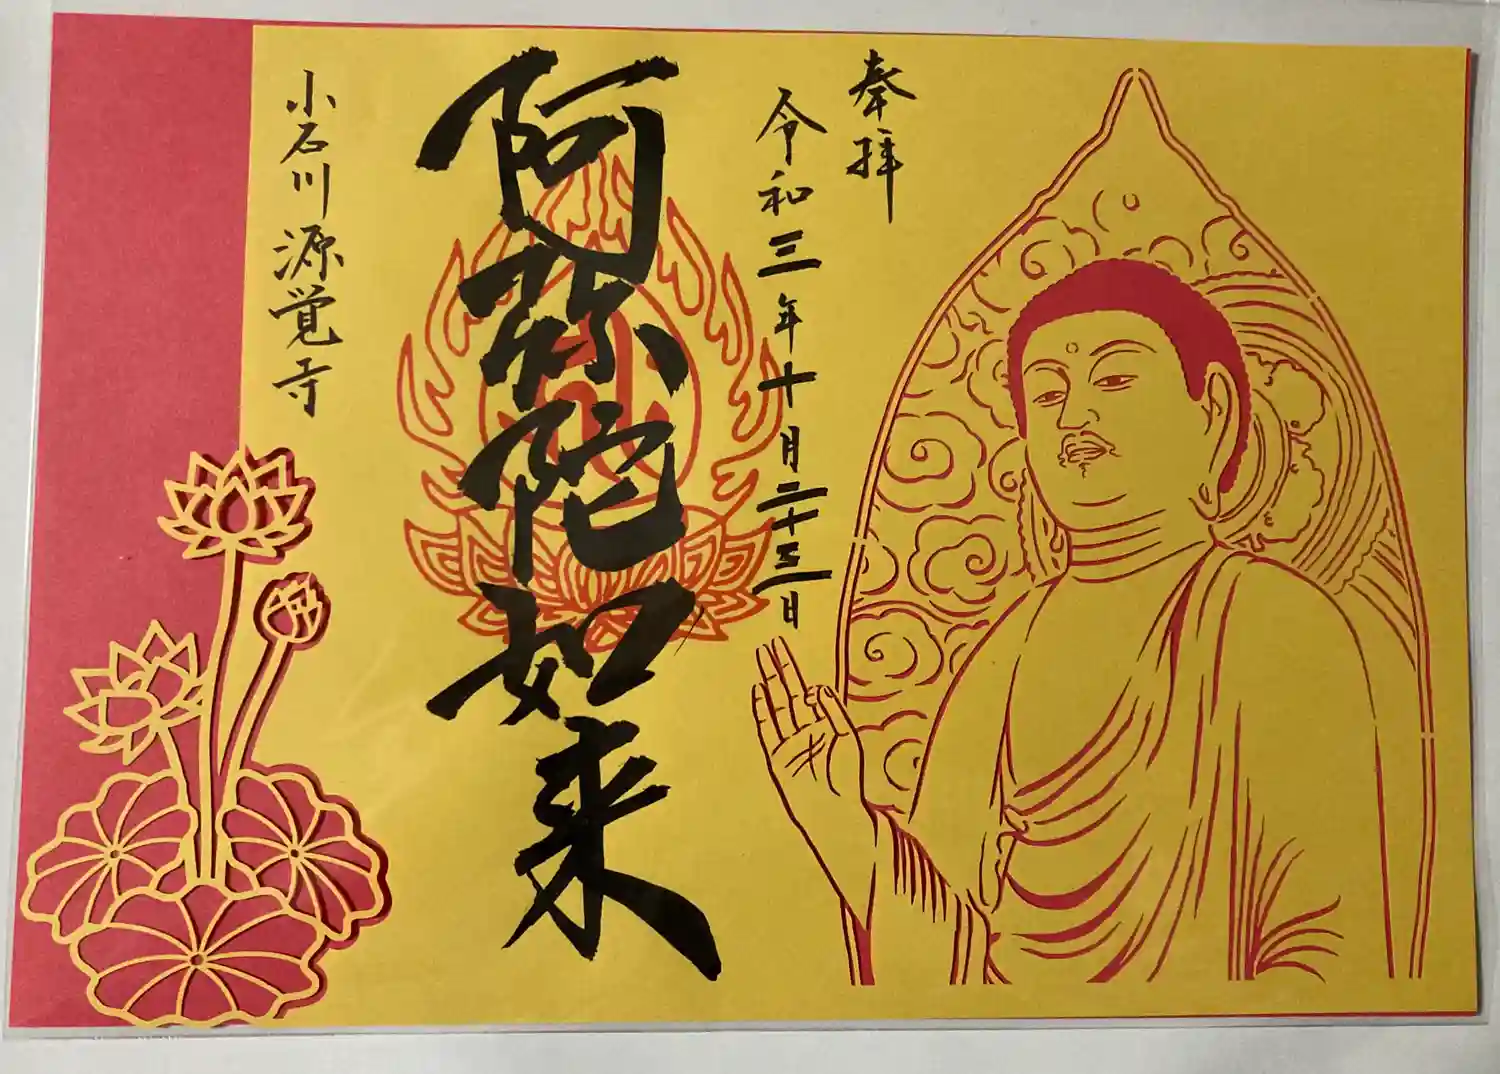 奉拝
令和三年十月二十三日
阿弥陀如来
小石川源覚寺